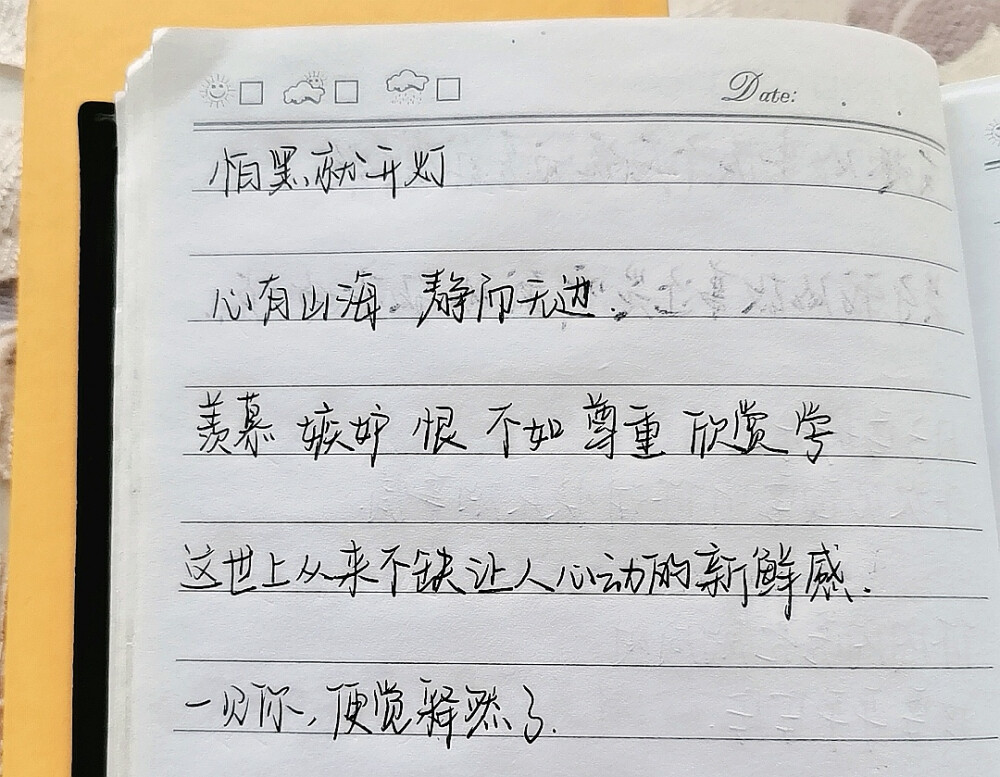 Date:
怕黑就开灯
心有山海 静而无边.
羡慕 嫉妒 恨 不如 尊重 欣赏 学
这世上从来不缺让人心动的新鲜感.
一见你,便觉释然了.